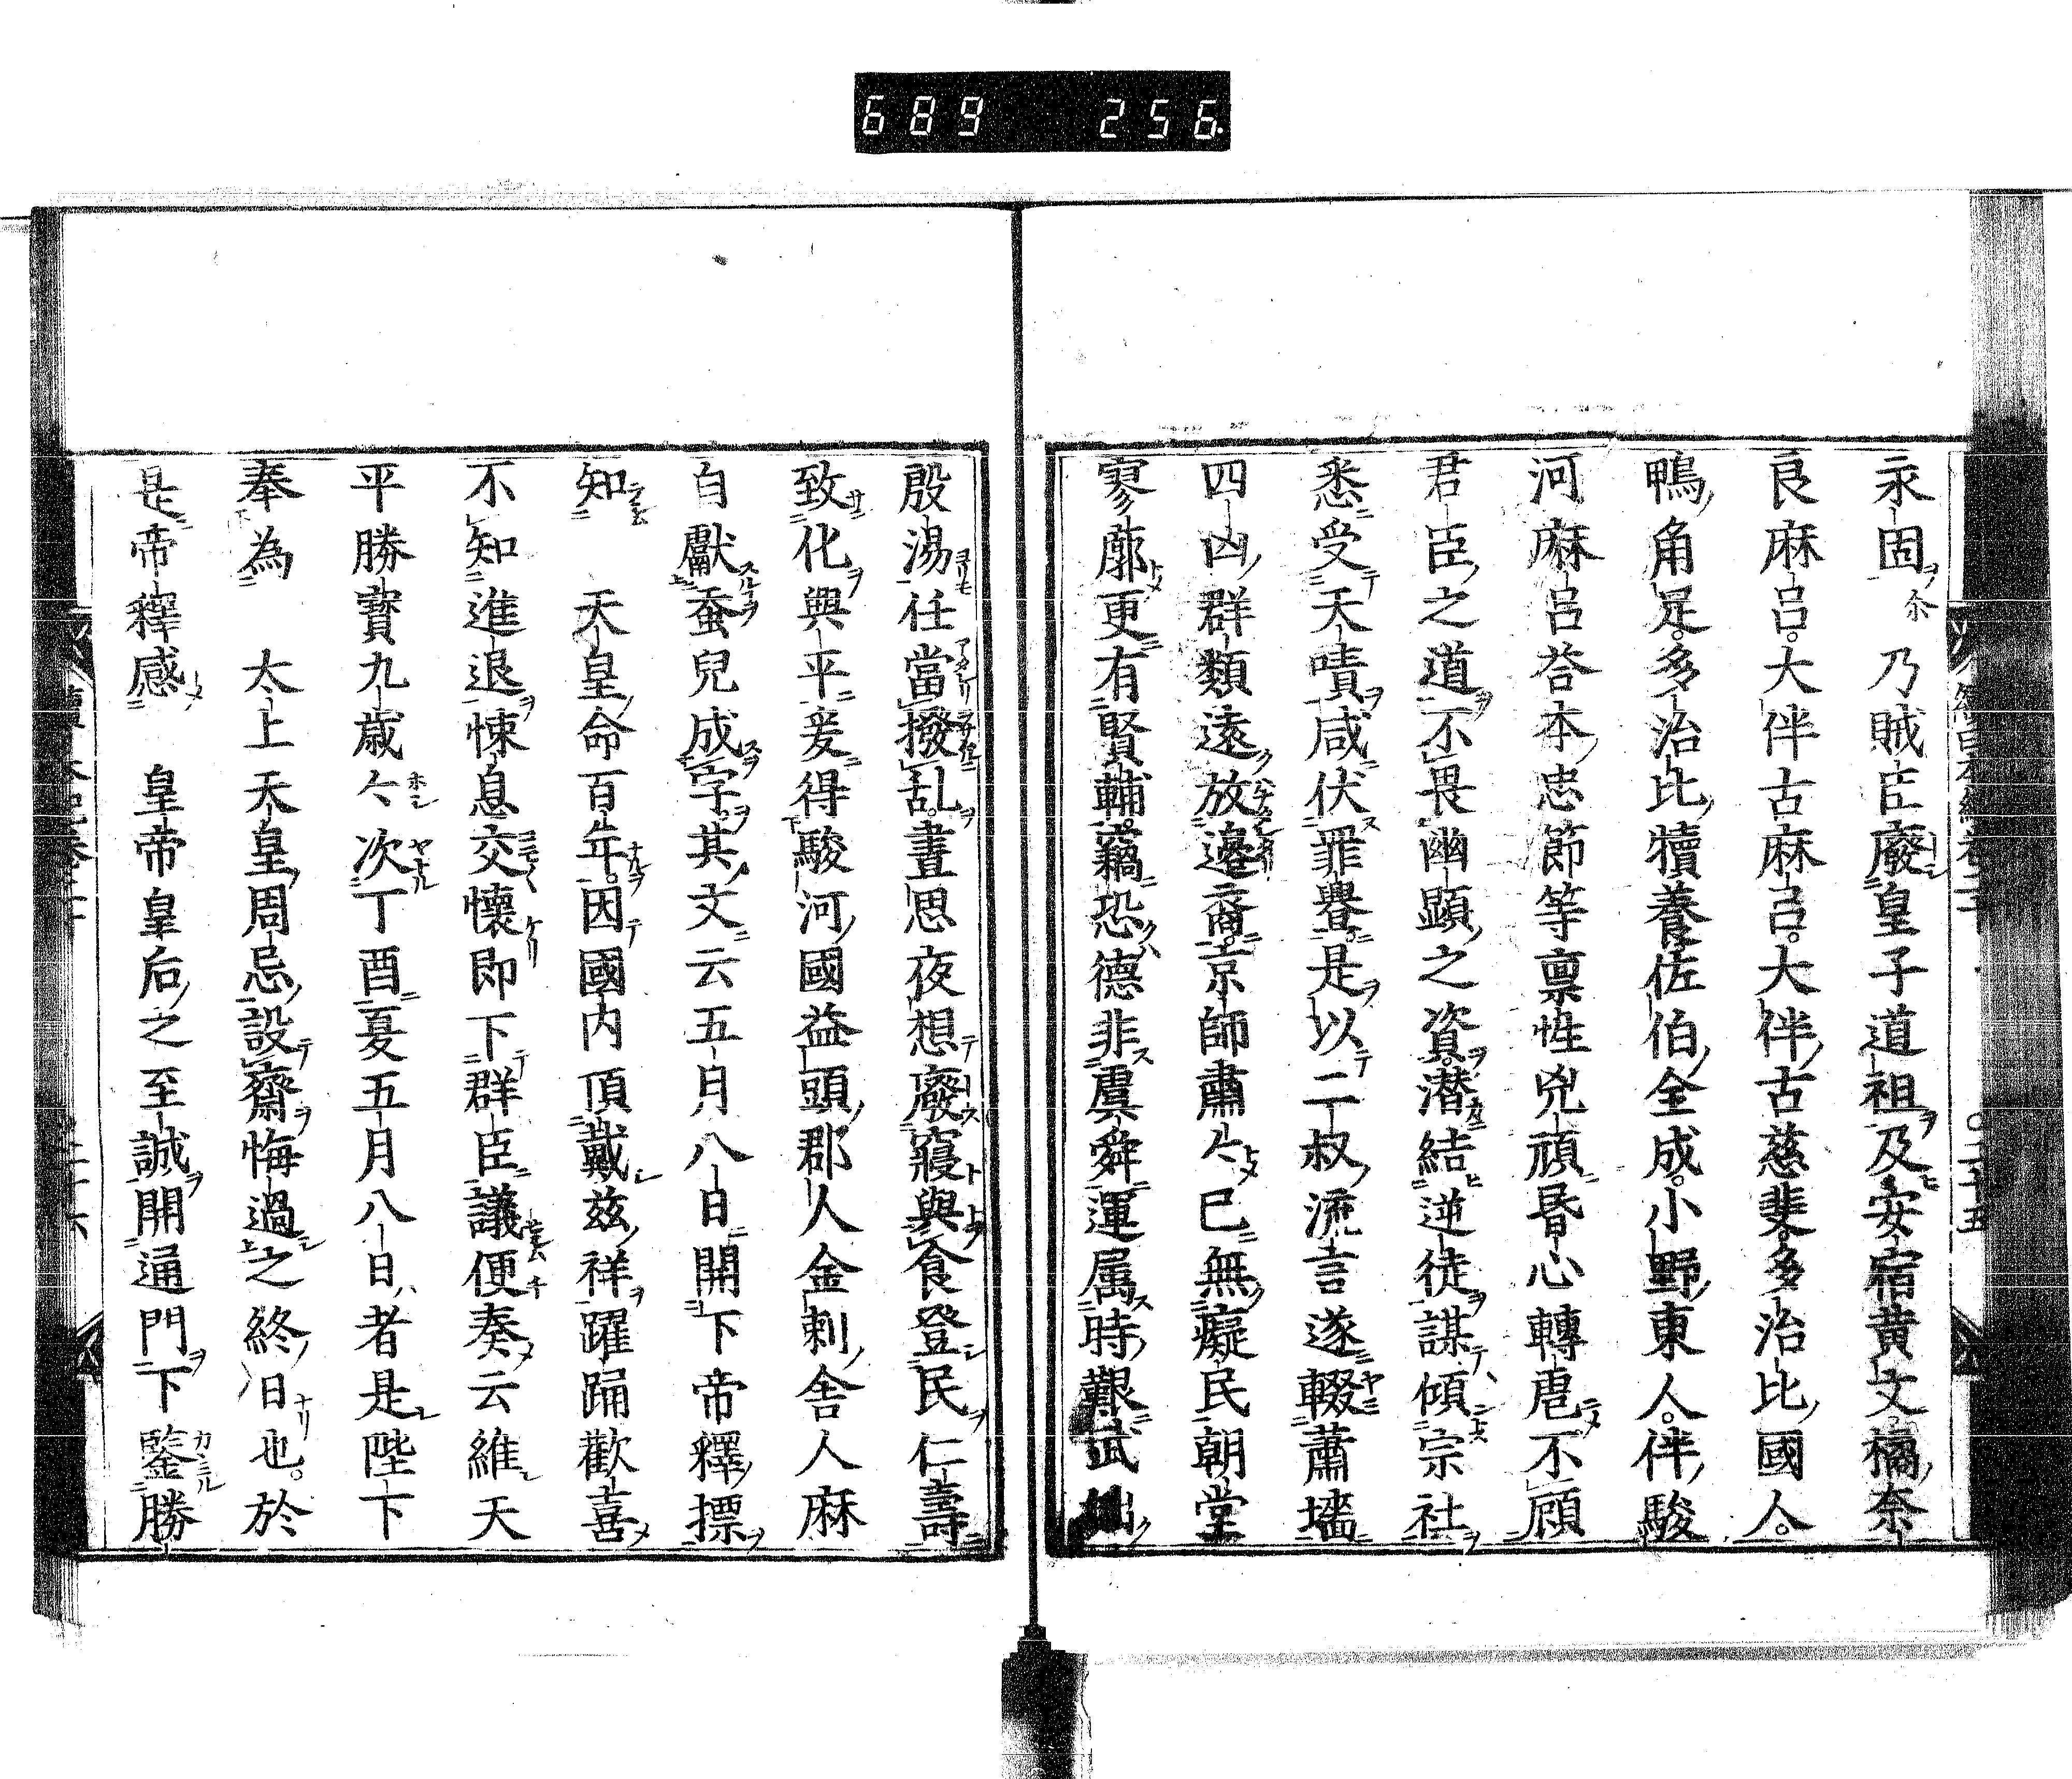 689 256
永固尒乃賊臣廢皇子道祖及安宿黄文橘奈
良麻呂。大伴古麻呂。大伴古慈斐。多治比國人。
鴨角足。多治比犢養。佐伯全成。小野東人。伴駿
河麻呂荅本忠節等禀性兇頑昏心轉虐不顧
君臣之道不畏幽顯之資。潜結逆徒謀傾宗社
悉受天嘖咸伏罪諐。是以二叔流言遂輟蕭墻
四凶群類遠放邊裔。京師肅〻已無癡民朝堂
寥廓更有賢輔。竊恐德非虞舜運属時艱武拙
殷湯任當撥乱。晝思夜想廢寢與食登民仁壽
致化興平爰得駿河國益頭郡人金刺舎人麻
自獻蚕兒成字。其文云五月八日開下帝釋標
知 天皇命百年。因國内頂戴兹祥躍踊歡喜
不知進退悚息交懷即下群臣議便奏云維天
平勝寶九歳〻次丁酉夏五月八日者是陛下
奉為 太上天皇周忌設齋悔過之終日也。於
是帝釋感 皇帝皇后之至誠開通門下鑒勝